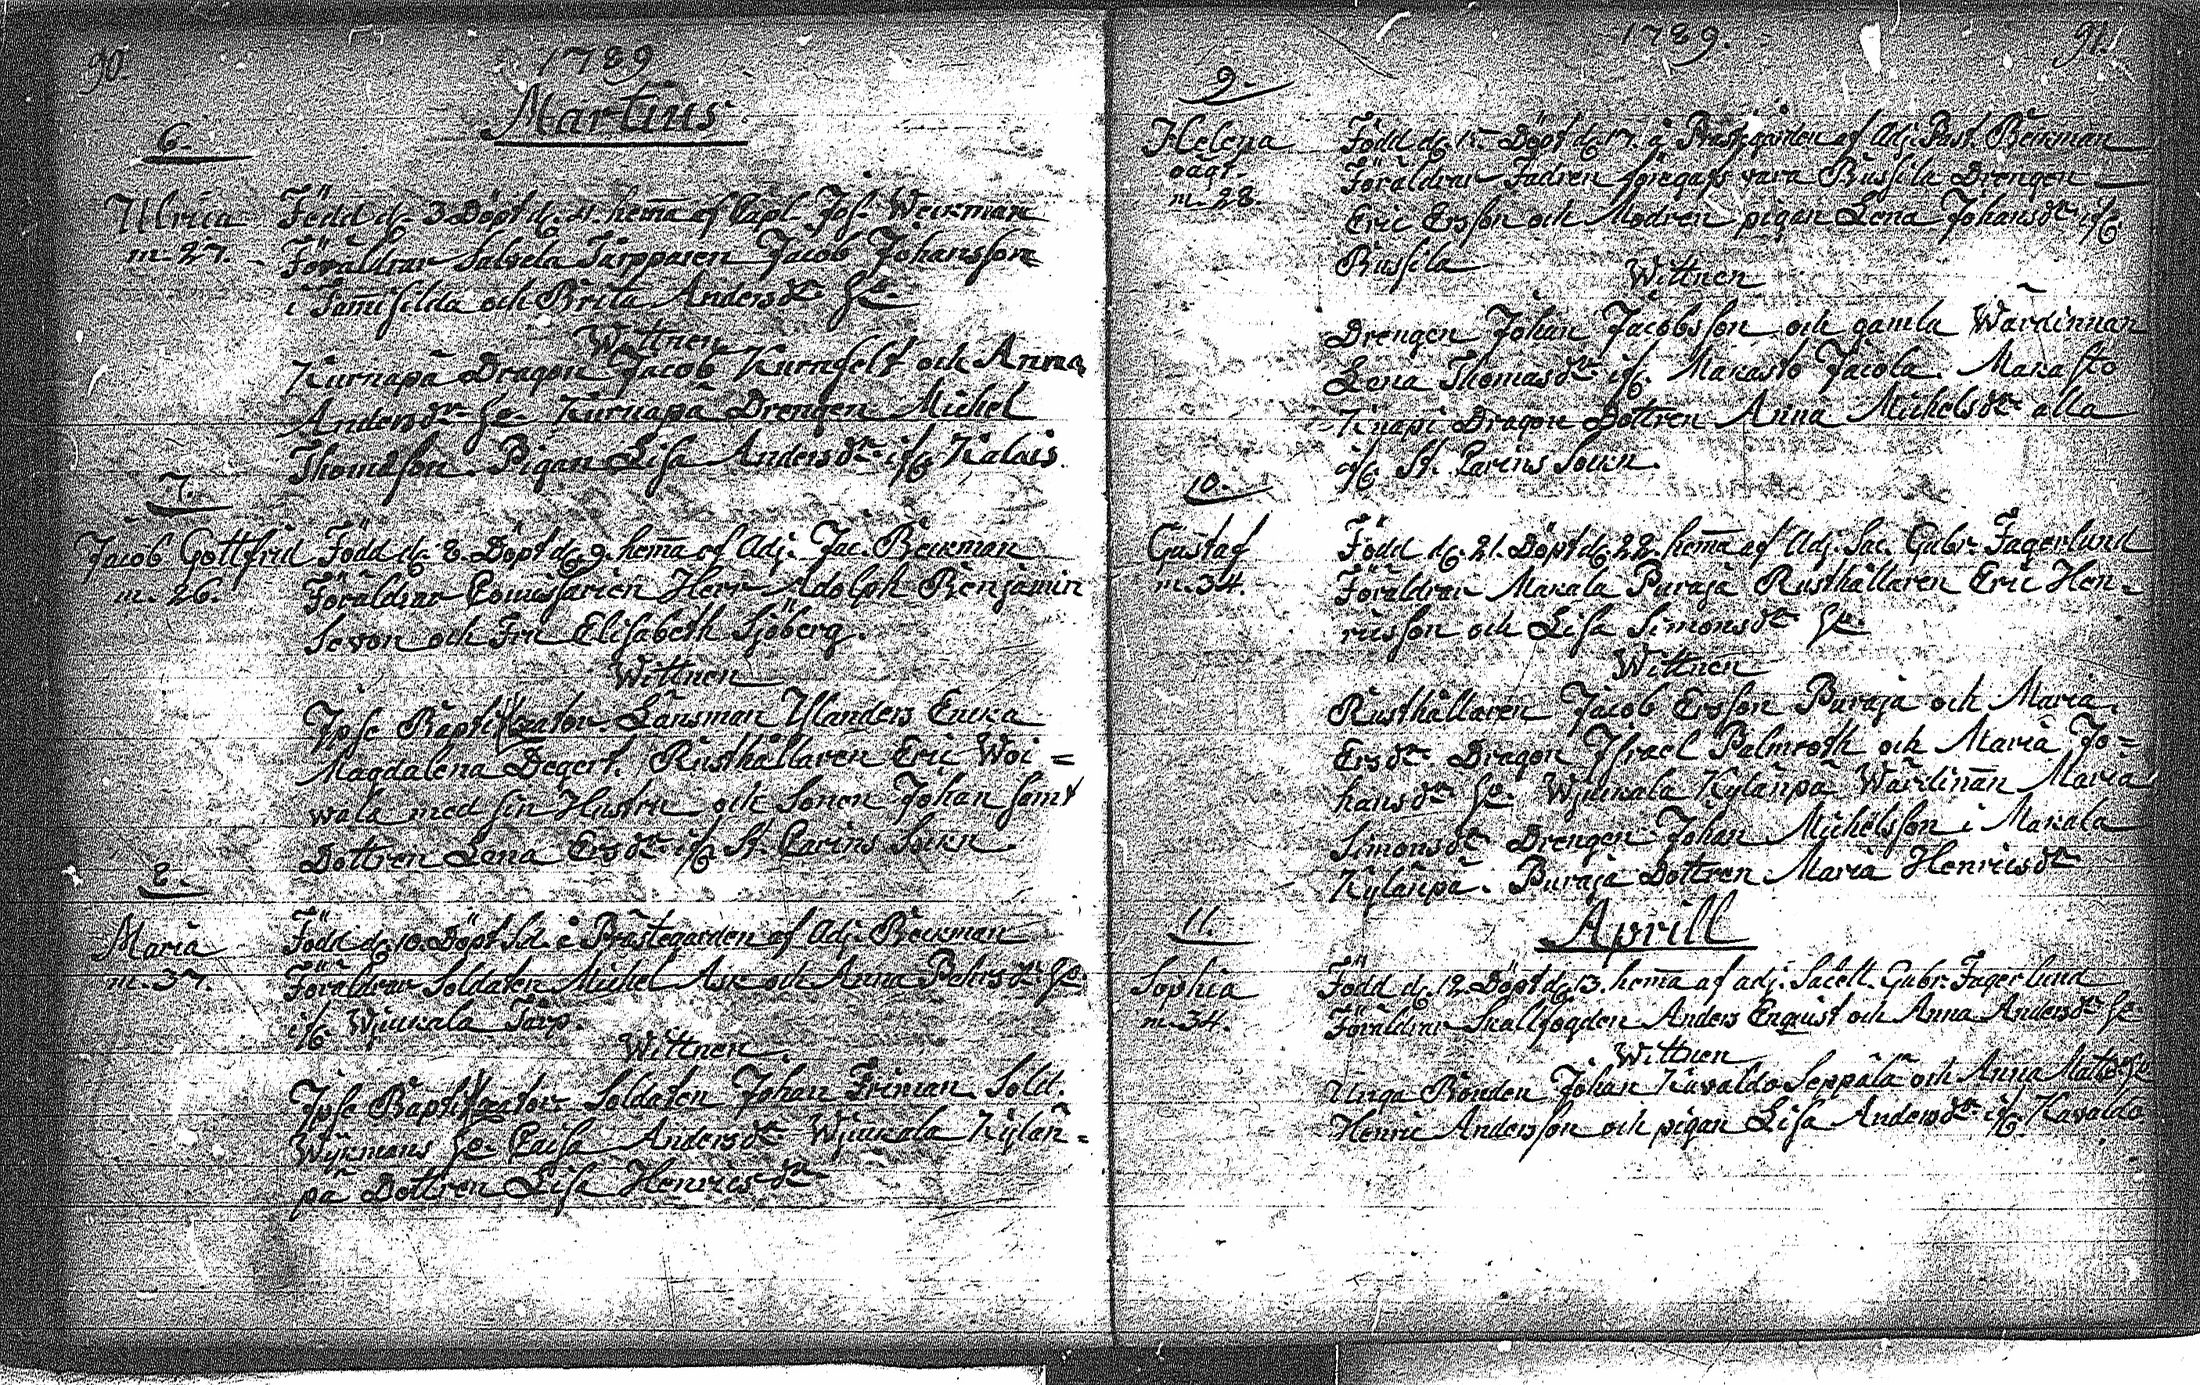 90.
1789
Martius
6.
Ulrica
m. 27.
Född d. 3. Döpt d. 4. hema af Capl. Jos. Weckman
Föräldrar Salsela Tårpparen Jacob Johansson
i Tomisilda och Brita Andersdr. H:o
Wittnen
Kurnapä Dragon Jacob Kurnfelt och Anna
Andersdr. H:o Kurnapä Drengen Michel
Thomæsson. Pigan Lisa Andersdr. ifr. Kalais.
7.
Jacob Gottfrid
m. 26.
Född d. 8. Döpt d. 9. hema af Adj. Jac. Beckman
Föräldrar Comissarien Herr Adolph Benjamin
Sevon och Fru Elisabeth Sjöberg.
Wittnen
Ipse Baptizator. Länsman Ylanders Enka
Magdalena Degert. Rusthållaren Eric Woi=
wala med sin Hustru och Sonen Johan samt
Dottren Lena Ersdr. ifr. St. Carins Sokn.
8.
Maria
m. 37.
Född d. 10. Döpt S.d. i Prästegården af Adj. Beckman
Föräldrar Soldaten Michel Ask och Anna Pehrsdr. H:o
ifr. Wjuckala Tårp.
Wittnen.
Ipse Baptizator. Soldaten Johan Friman. Sold.
Wijkmans H:o Caisa Andersdr. Wjuckala Kylän=
pä Dottren Lisa Henricsdr.
1789.
91.
9.
Helena
oägt.
m. 28.
Född d. 15. Döpt d. 17. i Prästegården af Adj. Past. Beckman
Föräldrar Fadren föregafs vara Russila Drengen
Eric Ersson och Modren pigan Lena Johansdr. ifr.
Russila
Wittnen
Drengen Johan Jacobsson och gamla Wärdinnan
Lena Thomasdr. ifr. Makasto Jacola. Makasto
Knapi Dragon Dottren Anna Michelsdr. alla
ifr. St. Carins Sokn.
10.
Gustaf
m. 34.
Född d. 21. Döpt d. 22. hema af Adj. Sac. Gabr. Fagerlund
Föräldrar Makala Puraja Rusthållaren Eric Hen=
ricsson och Lisa Simonsdr. H:o
Wittnen
Rusthållaren Jacob Ersson Puraja och Maria
Ersdr. Dragon Israel Palmroth och Maria Jo=
hansdr. H:o Wjuckala Kylänpä Wärdinan Maria
Simonsdr. Drengen Johan Michelsson i Makala
Kylänpä. Puraja Dottren Maria Henricsdr.
11.
Aprill
Sophia
m. 34.
Född d. 12. Döpt d. 13. hema af adj. Sacelt. Gabr. Fagerlund
Föräldrar Skallfogden Anders Enqvist och Anna Andersdr. H:o
Wittnen
Unga Bonden Johan Kavaldo Seppälä och Anna Matsdr. H:o
Henric Andersson och pigan Lisa Andersdr. ifr. Kavaldo